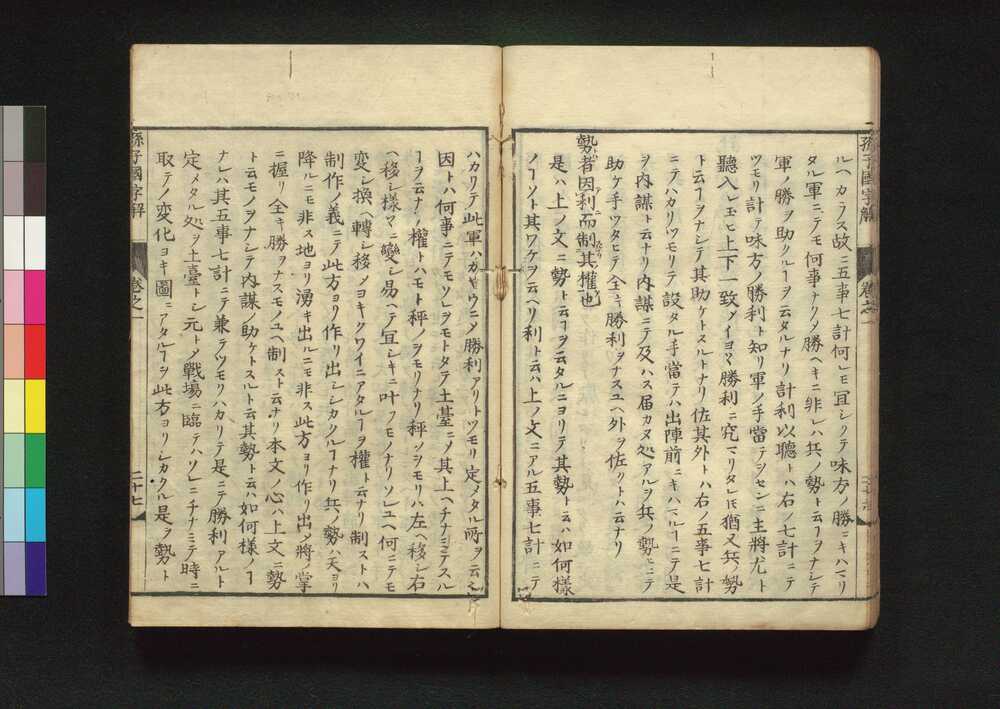 孫子國字解 卷之一
ルヘカラス故ニ五事七計何レモ宜シクテ味方ノ勝ニキハマリ
タル軍ニテモ何事ナクメ勝ヘキニ非レハ兵ノ勢ト云ヿヲナシテ
軍ノ勝ヲ助クルヿヲ云タルナリ計利以聽トハ右ノ七計ニテ
ツモリ計テ味方ノ勝利ト知リ軍ノ手當テヲセンニ主將尤ト
聽入レ玉ヒ上下一致メイヨ〱勝利ニ究マリタレ𪜈猶又兵ノ勢
ト云ヿヲナシテ其助ケトスルトナリ佐其外トハ右ノ五事七計
ニテハカリツモリテ設タル手當テハ出陣前ニキハマルヿニテ是
ヲ内謀ト云ナリ内謀ニテ及ハス届カヌ処アルヲ兵ノ勢ニテ
助ケ手ツタヒテ全キ勝利ヲナスユヘ外ヲ佐クトハ云ナリ
勢者因利而制其權也
是ハ上ノ文ニ勢ト云ヿヲ云タルニヨリテ其勢ト云ハ如何樣
ノヿソト其ワケヲ云ヘリ利ト云ハ上ノ文ニアル五事七計ニテ
ハカリテ此軍ハカヤウニメ勝利アリトツモリ定メタル所ヲ云
因トハ何事ニテモソレヲモトタテ土臺ニメ其上ヘチナミテスル
ヿヲ云ナリ權トハモト秤ノヲモリナリ秤ノヲモリハ左ヘ移シ右
ヘ移シ樣々ニ變シ易ヘテ宜シキニ叶フモノナリソレユヘ何ニテモ
變シ換ヘ轉シ移メヨキクワイニアタルヿヲ權ト云ナリ制ストハ
制作ノ義ニテ此方ヨリ作リ出シシカクルヿナリ兵ノ勢ハ天ヨリ
降ルニモ非ス地ヨリ湧キ出ルニモ非ス此方ヨリ作リ出メ將ノ掌
ニ握リ全キ勝ヲナスモノユヘ制スト云ナリ本文ノ心ハ上文ニ勢
ト云モノヲナシテ内謀ノ助ケトスルト云其勢ト云ハ如何樣ノヿ
ナレハ其五事七計ニテ兼テツモリハカリテ是ニテ勝利アルト
定メタル処ヲ土臺トシ元トメ戰場ニ臨テハソレニチナミテ時ニ
取テノ変化ヨキ圖ニアタルヿヲ此方ヨリシカクル是ヲ勢ト
孫子國字解 卷之一 二十七